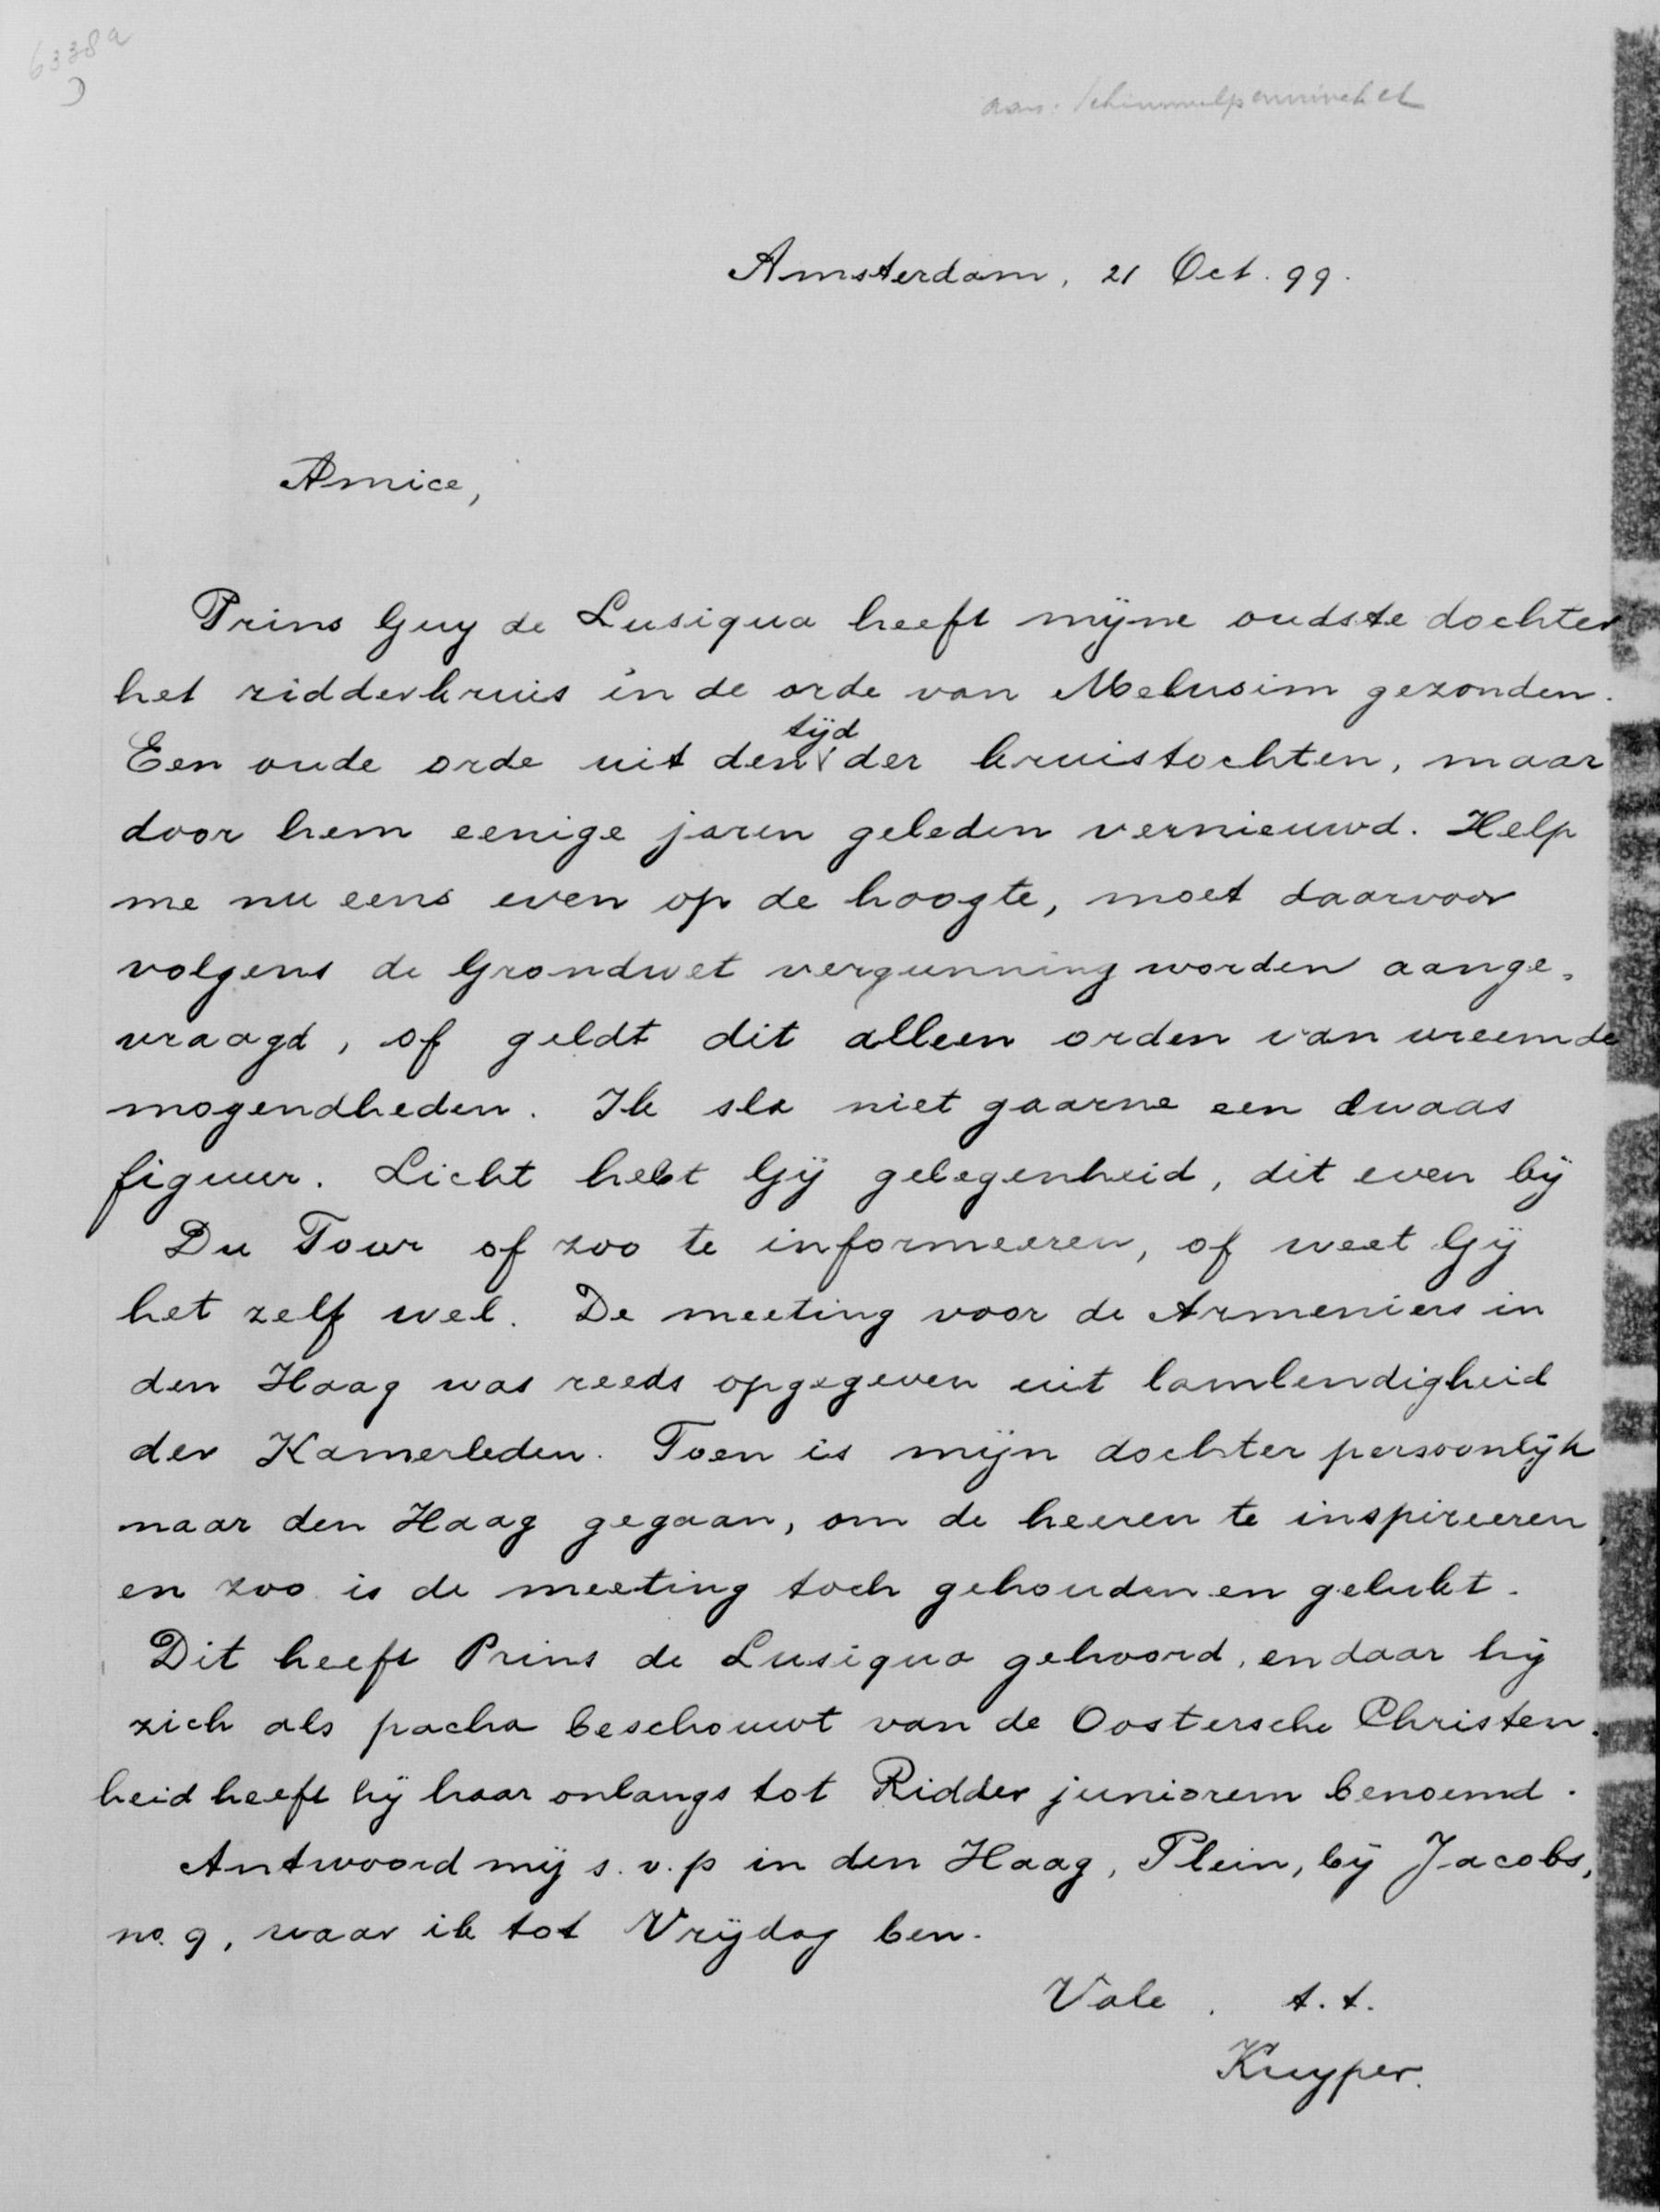 6338a
aan: Schimmelpenninck
Amsterdam, 21 Oct. 99.
Amice,
Prins Guy de Lusiqua heeft mijne oudste dochter
het ridderkruis in de orde van Melusim gezonden.
tijd
Een oude orde uit den der kruistochten, maar
door hem eenige jaren geleden vernieuwd. Help
me nu eens even op de hoogte, moet daarvoor
volgens de Grondwet vergunning worden aange-
vraagd, of geldt dit alleen orden van vreemde
mogendheden. Ik sla niet gaarne een dwaas
figuur. Licht hebt Gij gelegenheid, dit even bij
Du Tour of zoo te informeeren, of weet Gij
het zelf wel. De meeting voor de Armeniers in
den Haag was reeds opgegeven uit lamlendigheid
der Kamerleden. Toen is mijn dochter persoonlijk
naar den Haag gegaan, om de heeren te inspireeren,
en zoo is de meeting toch gehouden en gelukt.
Dit heeft Prins de Lusiqua gehoord, en daar hij
zich als pacha beschouwt van de Oostersche Christen-
heid heeft hij haar onlangs tot Ridder juniorem benoemd.
Antwoord mij s.v.p in den Haag, Plein, bij Jacobs,
no. 9, waar ik tot Vrijdag ben.
Vale. t.t.
Kuyper.